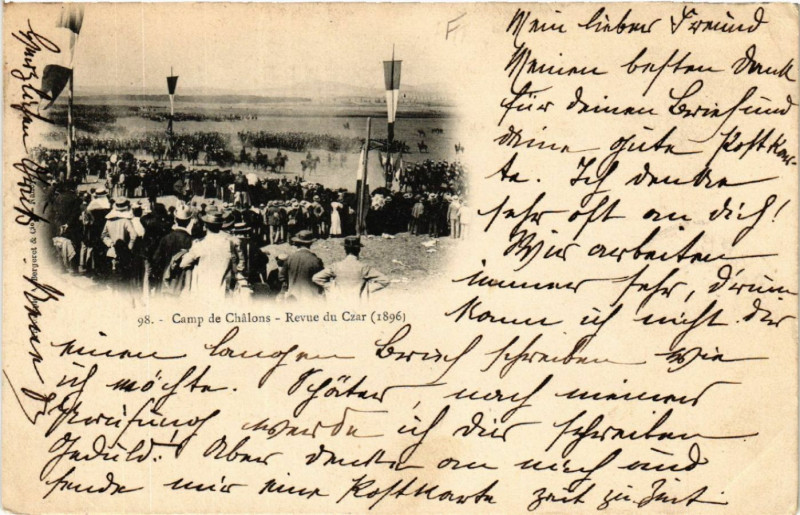 Mein lieber Freund
Meinen besten Dank
für deinen Brief und
deine gute Postkar-
te. Ich denke
sehr oft an dich!
Wir arbeiten
immer sehr, d'rum
kann ich nicht dir
einen langen Brief schreiben wie
ich möchte. Später, nach meiner
Prüfung werde ich dir schreiben
Geduld! Aber denke an mich und
sende mir eine Postkarte zeit zu Zeit.
98. - Camp de Châlons - Revue du Czar (1896)
Bergeret &
Herzlichen Gruß